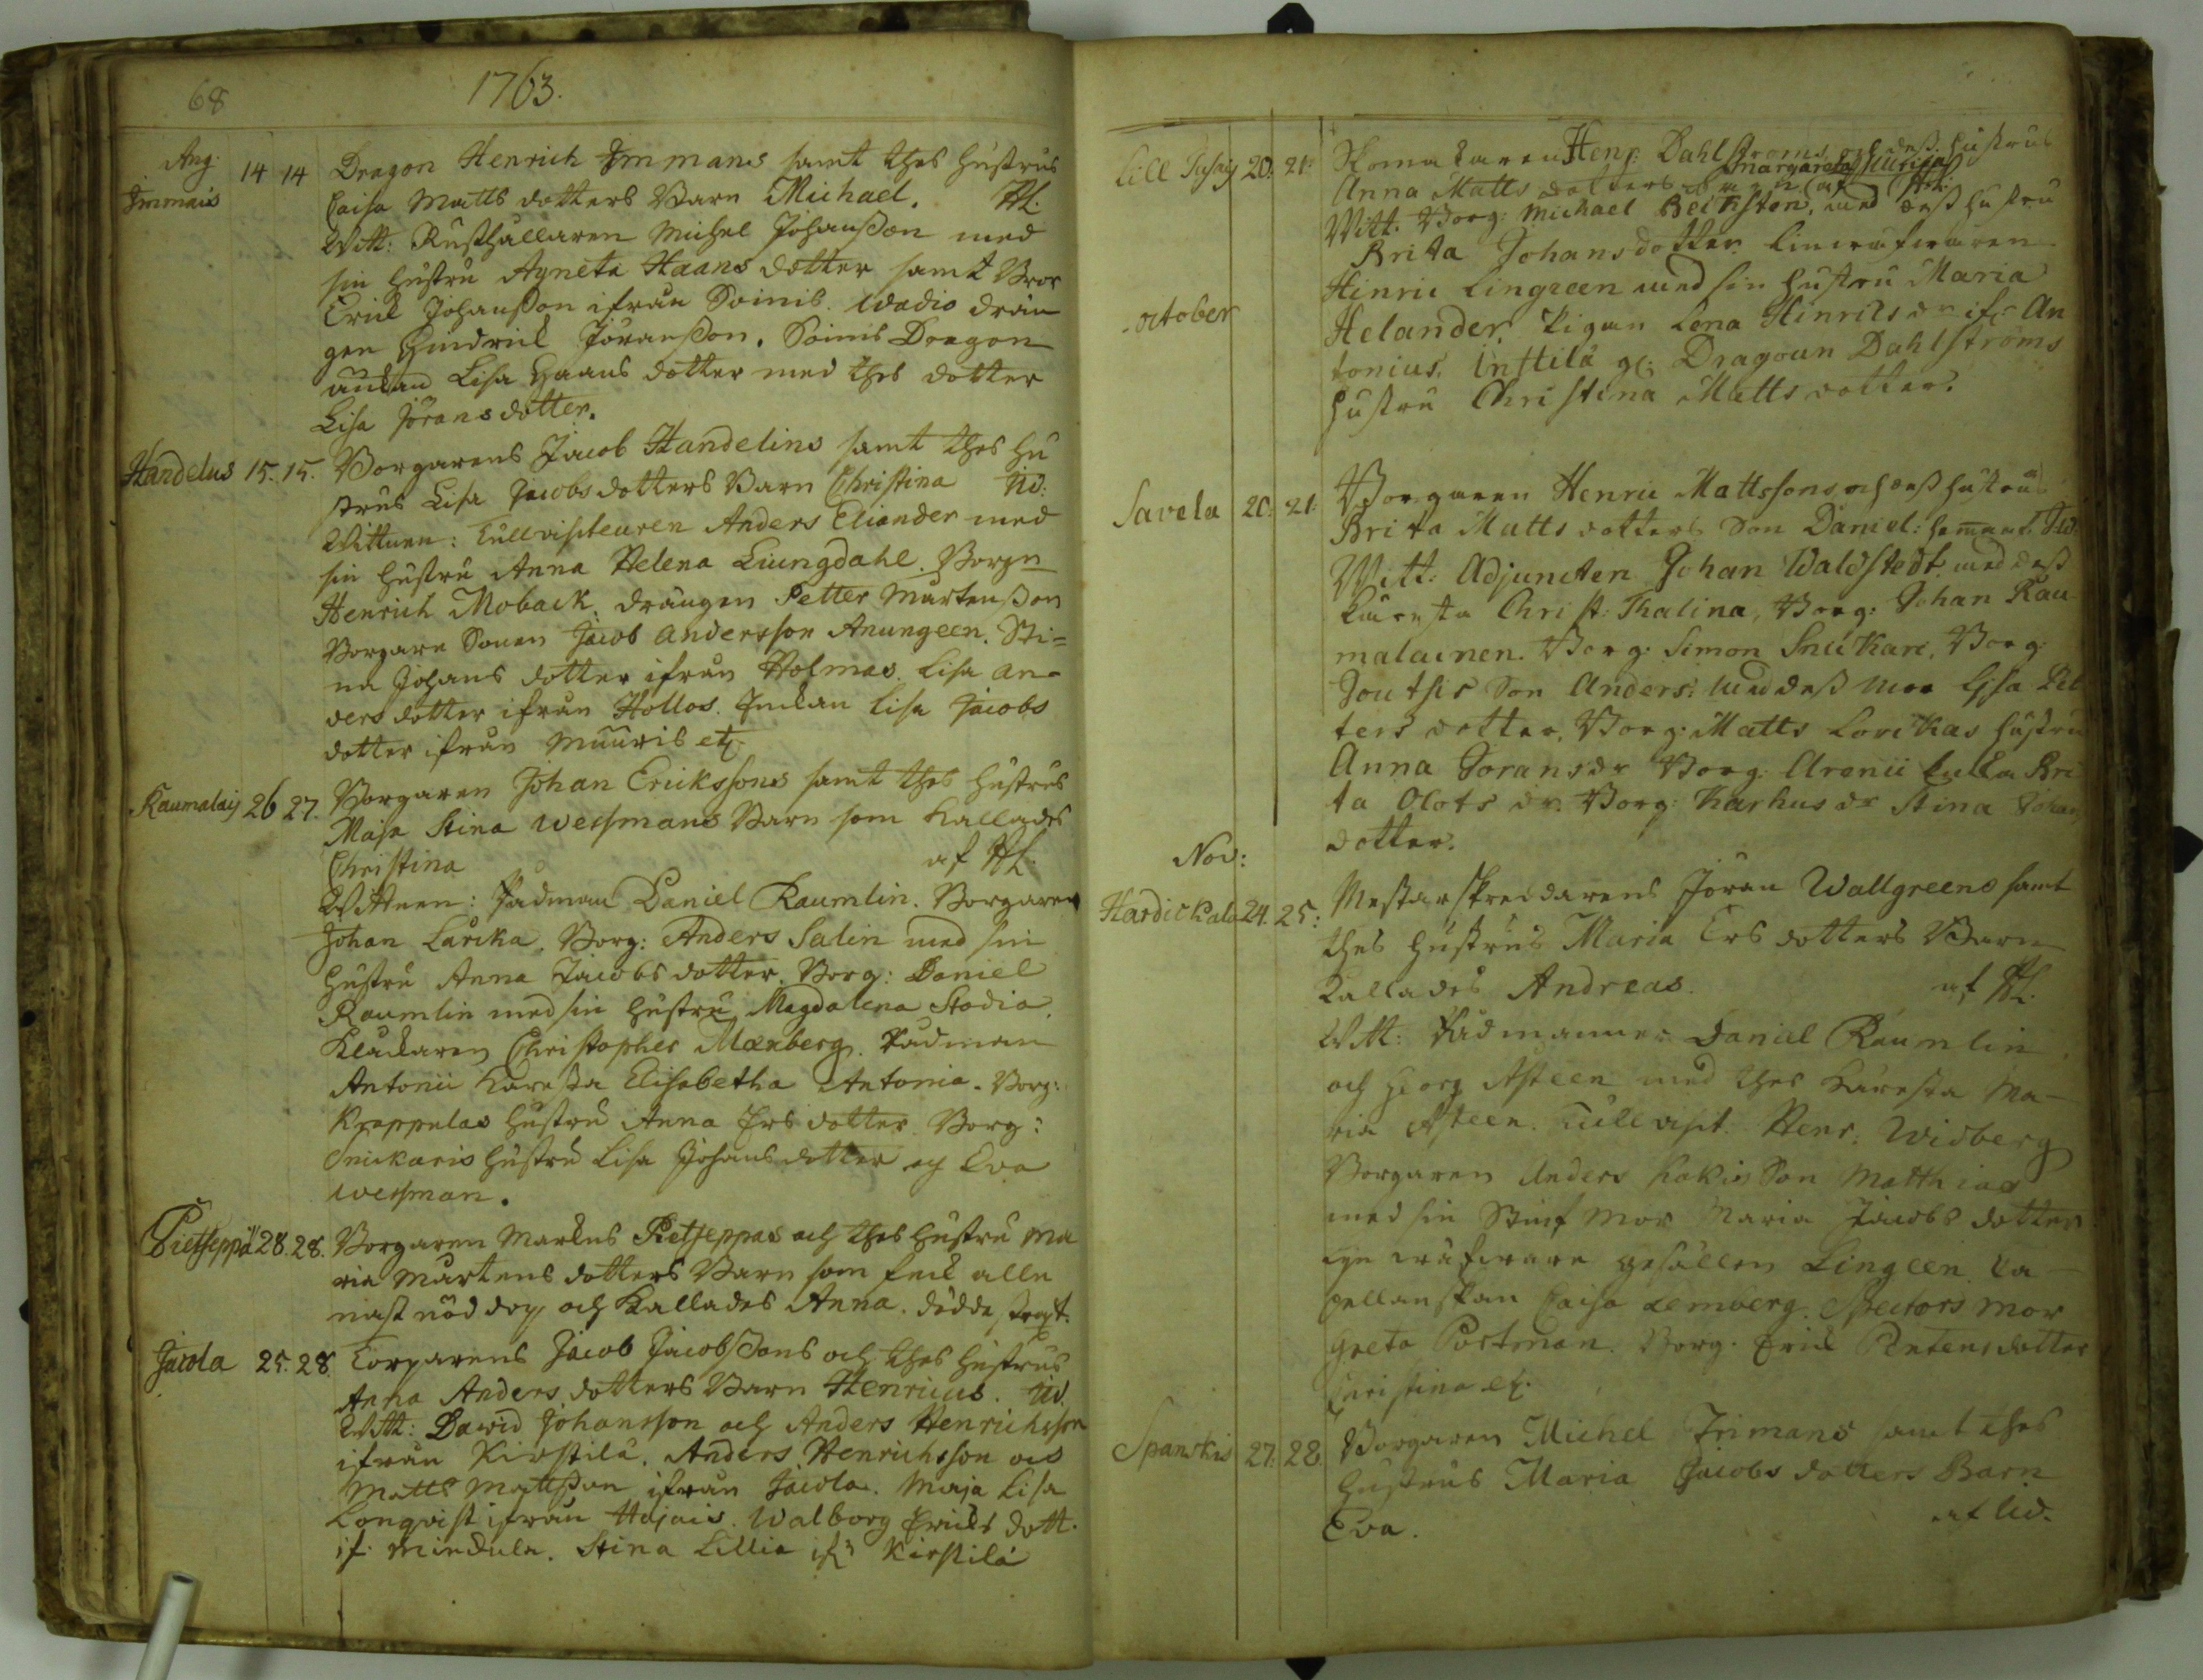 68
1763.
Aug.
Immais 14 14 Dragon Henrich Immans samt thes hustrus
Caisa Matts dotters Barn Michael. HL.
Witt: Rusthållaren Michel Johansson med
sin hustru Agneta Haans dotter samt Bror
Erick Johansson ifrån Soinis. Wadio drän
gen Hindrick Jöransson. Soinis Dragon
änckan Lisa Haans dotter med thes dotter
Lisa Jöransdotter.
Handelus 15. 15. Borgarens Jacob Handelins samt thes hu
strus Lisa Jacobsdotters Barn Christina Uv:
Wittnen: Tullvisiteuren Anders Eliander med
sin hustru Anna Helena Liungdahl. Borgn
Henrich Moback. drängen Petter Mårtensson
Borgare Sonen Jacob Andersson Anungeen. Sti=
na Johans dotter ifrån Holmas. Lisa An=
ders dotter ifrån Hollos. Enckan Lisa Jacobs
dotter ifrån Muuris etc.
Raumalaij 26 27. Borgaren Johan Erickssons samt thes hustrus
Maja Stina Wessmans Barn som kallades
Christina af HL.
Wittnen: Rådman Daniel Raumlin. Borgaren
Johan Larcka. Borg: Anders Salin med sin
hustru Anna Jacobs dotter. Borg: Daniel
Raumlin med sin hustru Magdalena Stodia.
Klåckaren Christopher Mænberg. Rådman
Antonii Käresta Elisabetha Antonia. Borg:
Krappulas hustru Anna Ers dotter. Borg:
Snickaris hustru Lisa Johansdotter och Eva
Wessman.
Pietseppä 28. 28. Borgaren Marcus Pietseppas och thes hustru Ma
ria Mårtens dotters Barn som feck alle
nast nöd dop och kallades Anna. dödde strax.
Jacola 25. 28. Torparens Jacob Jacobssons och thes hustrus
Anna Anders dotters Barn Henricus. Uv.
Witt: Dawid Johansson och Anders Henrichsson
ifrån Kirstilä. Anders Henrichsson och
Matts Mattsson ifrån Jacola. Maja Lisa
Lonqvist ifrån Hajais. Walborg Ericks dott.
if. Mindula. Stina Lillia ifr. Kirstilä
Lill 20. 21. Skomakaren Henr: Dahlströms och dess hustrus
Anna Matts dotters Margareta Ulrica HL.
Witt. Borg: Michael Beckstén, med dess hustru
Brita Johansdotter. Linwäfwaren
Hinric Lingreen med sin hustru Maria
october
Helander. Pigan Lena Hinrics dr ifr. An
tonius, Dragoun Dahlströms
hustru Christina Matts dotter.
Savela 20. 21. Borgaren Henric Mattssons och dess hustrus
Brita Matts dotters Son Daniel:
Witt: Adjuncten Johan Waldstedt med dess
Käresta Christ: Thalina, Borg: Johan Rau
malainen. Borg: Simon Snickare, Borg:
Joutsis Son Anders: med dess mor Lisa Pet
ters dotter, Borg: Matts Lorikas hustru
Anna Jorans dr Borg: Aronii Bri
ta Olofs dr. Borg: Karhus dr Stina Johans
dotter.
Nov:
Hardickala 24. 25. Mestar skreddarens Jöran Wallgreens samt
thes hustrus Maria Ers dotters Barn
kallades Andreas. af HL.
Witt: Rådmanner Daniel Raumlin
och Georg Asteen med thes käresta Ma-
ria Asteen. Tullvisit. Henr. Widberg
Borgaren Anders Kokis Son Matthias
med sin Stiuf Mor Maria Jacobs dotter
gesällen Lingeen. Ca-
pellanskan Caisa Lemberg. Spectors mor
Greta Portman. Borg. Erick Pentens dotter
Christina etc.
Spanskis 27. 28. Borgaren Michel Irimans samt thes
hustrus Maria Jacobs dotters Barn
Eva. af Uv.